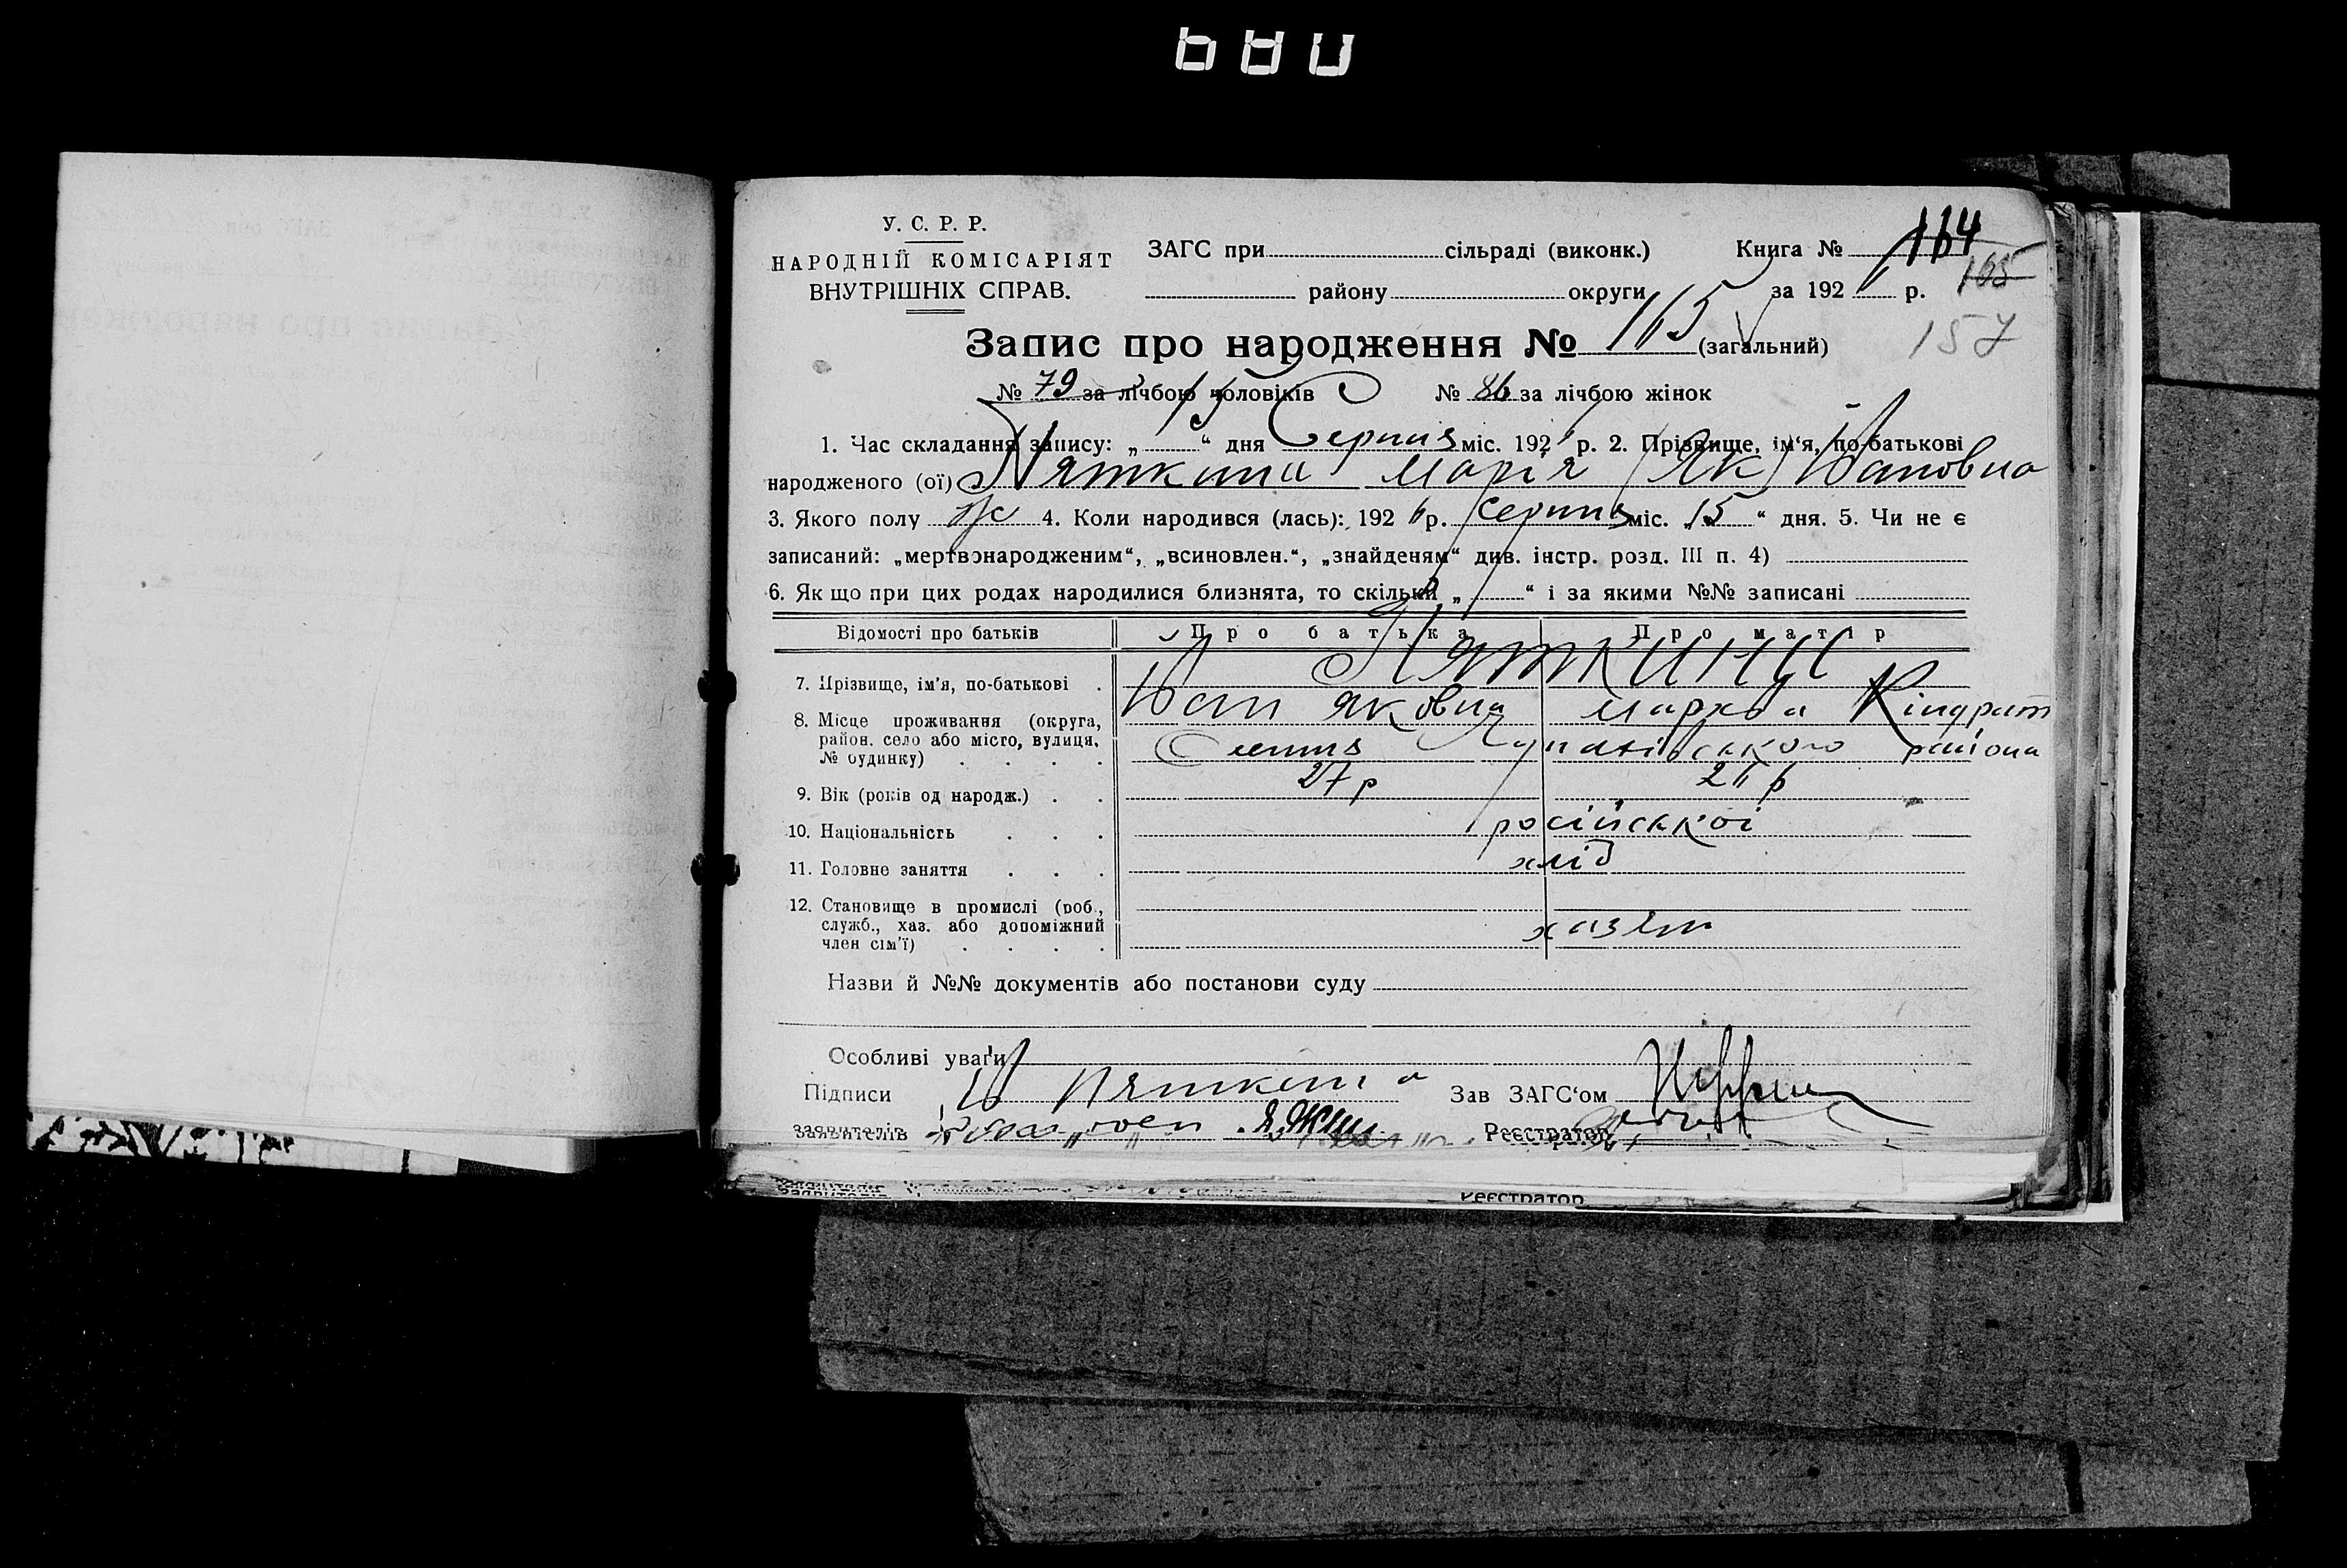 У. С. Р. Р.
НАРОДНІЙ КОМІСАРІЯТ
ВНУТРІШНІХ СПРАВ.
ЗАГС при сільраді (виконк.) Книга № 164
району округи за 192 р. 165
Запис про народження № 165 (загальний) 157
№ 79 за лічбою чоловіків № 86 за лічбою жінок
1. Час складання запису: „15“ дня Серпня міс. 1926 р. 2. Прізвище, ім‘я, по-батькові
народженого (ої) Пяткина Марія Ивановна
3. Якого полу ж 4. Коли народився (лась): 1926 р. Серпня міс. „15“ дня. 5. Чи не є
записаний: „мертвонародженим“, „всиновлен.“, „знайденям“ див. інстр. розд. III п. 4)
6. Як що при цих родах народилися близнята, то скільки „ “ і за якими №№ записані
Відомості про батьків Про батька Про матір
Пяткини
7. Прізвище, ім'я, по-батькові Иван Марфа Кіндрат
8. Місце проживання (округа, район. село або місто, вулиця, № будинку) района
9. Вік (років од народж.) 27 р 26 р
10. Національність російської
11. Головне заняття хліб
12. Становище в промислі (роб., служб., хаз. або допоміжний член сім'ї) хазяін
Назви й №№ документів або постанови суду
Особливі уваги
Підписи И Пяткин Зав ЗАГС‘ом
заявителів Реєстратор
заявителів Реєстратор